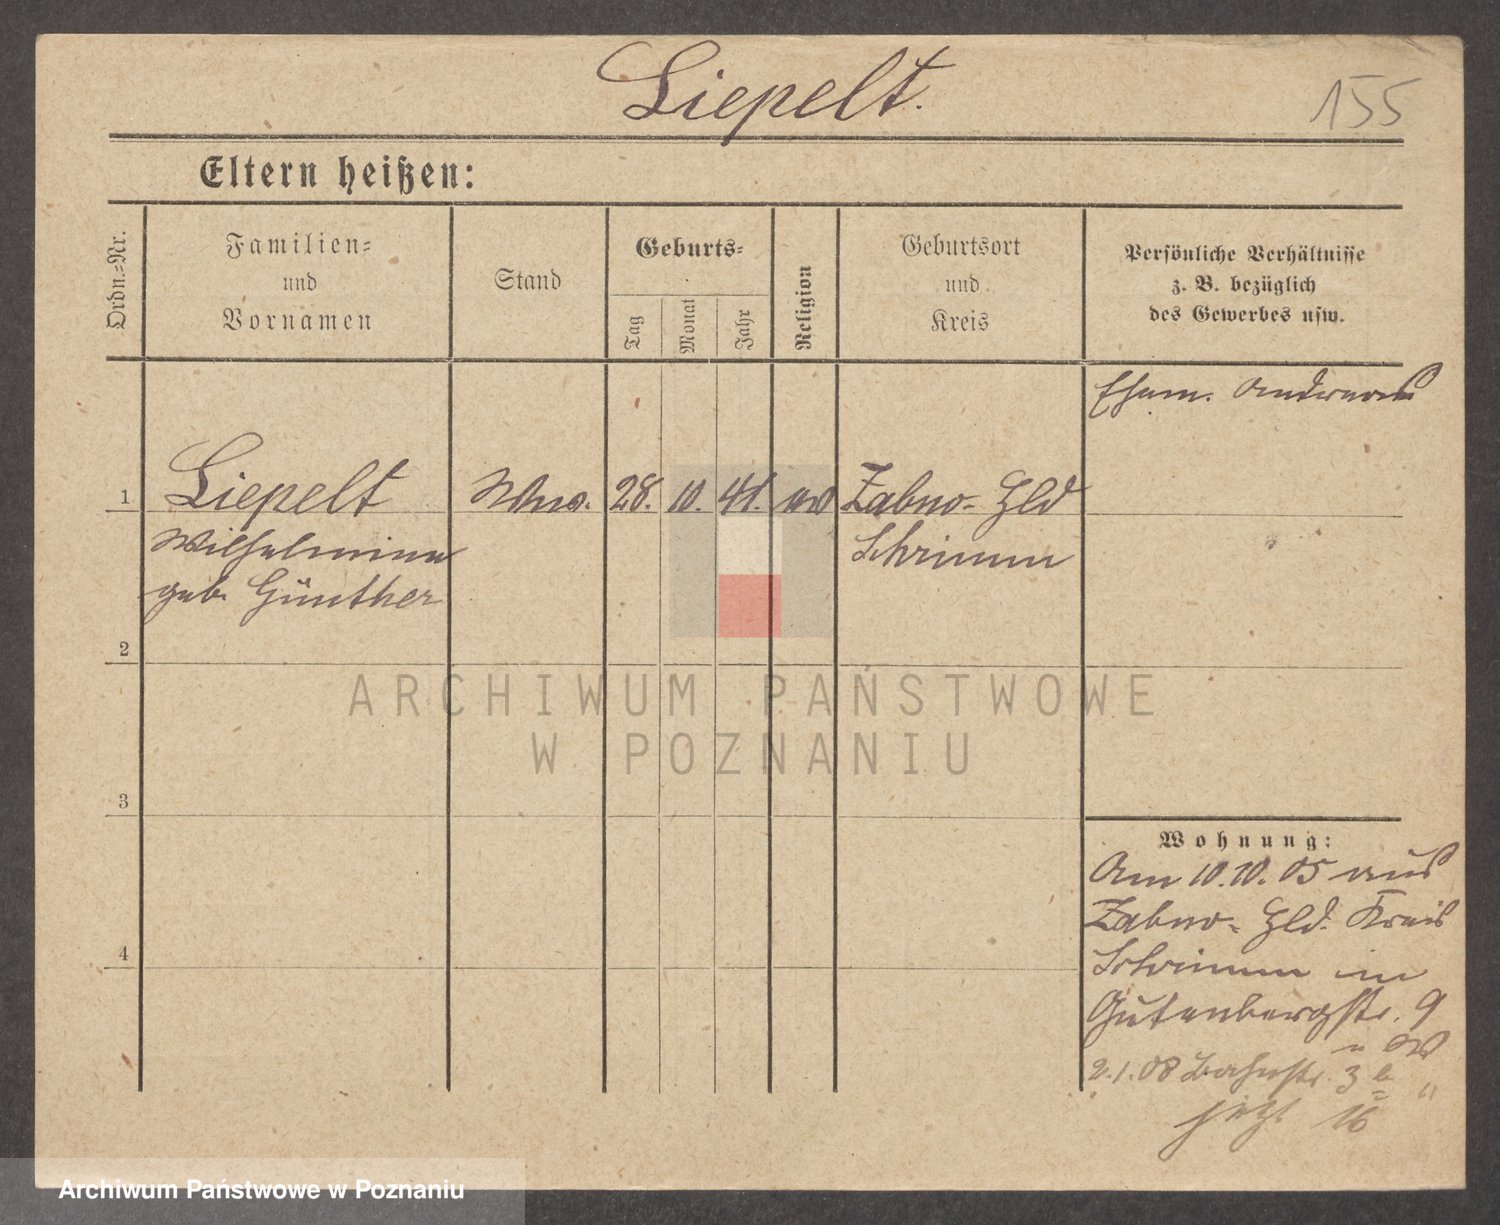 Liepelt.
155
Eltern heißen:
Ordn.=Nr.
Familien=
und
Vornamen
Stand
Geburts=
Tag
Monat
Jahr
Religion
Geburtsort
und
Kreis
Persönliche Verhältnisse
z. B. bezüglich
des Gewerbes usw.
1
Liepelt
Wwe.
28.
10.
41.
ev
Zabno- Hld
Wilhelmine
Schrimm
geb. Günther
2
3
4
Wohnung:
Am 10.10.05 aus
Zabno- Hld. Kreis
Schrimm in
Gutenbergstr. 9
2.1.08 Bahnstr. 3
jetzt 16
ARCHIWUM PAŃSTWOWE
W POZNANIU
Archiwum Państwowe w Poznaniu